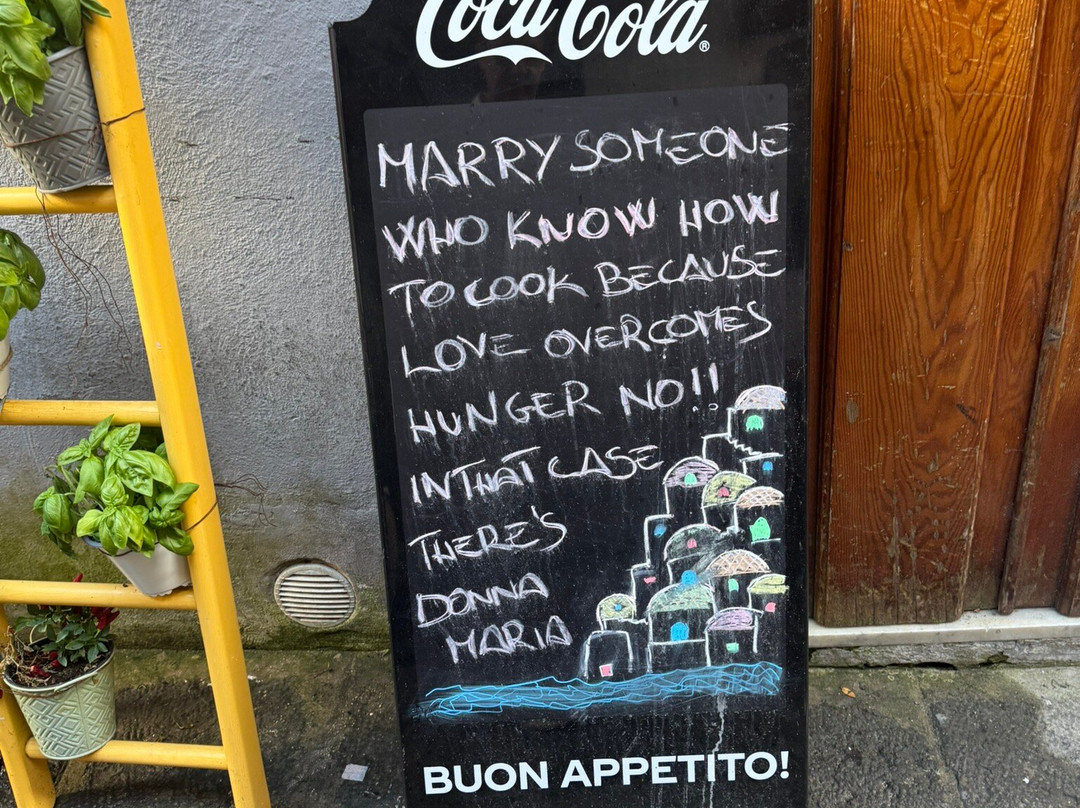 Coca-Cola®
MARRY SOMEONE
WHO KNOW HOW
TO COOK BECAUSE
LOVE OVERCOMES
HUNGER NO!!
IN THAT CASE
THERE'S
DONNA
MARIA
BUON APPETITO!